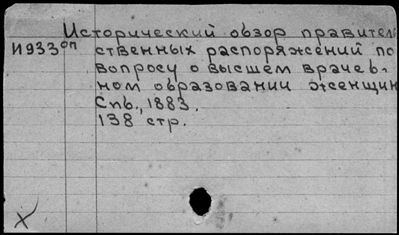 Исторический обзор правитель
И933оп ственных распоряжений по
вопросу о высшем врачеб-
ном образовании женщин
Спб., 1883.
138 стр.